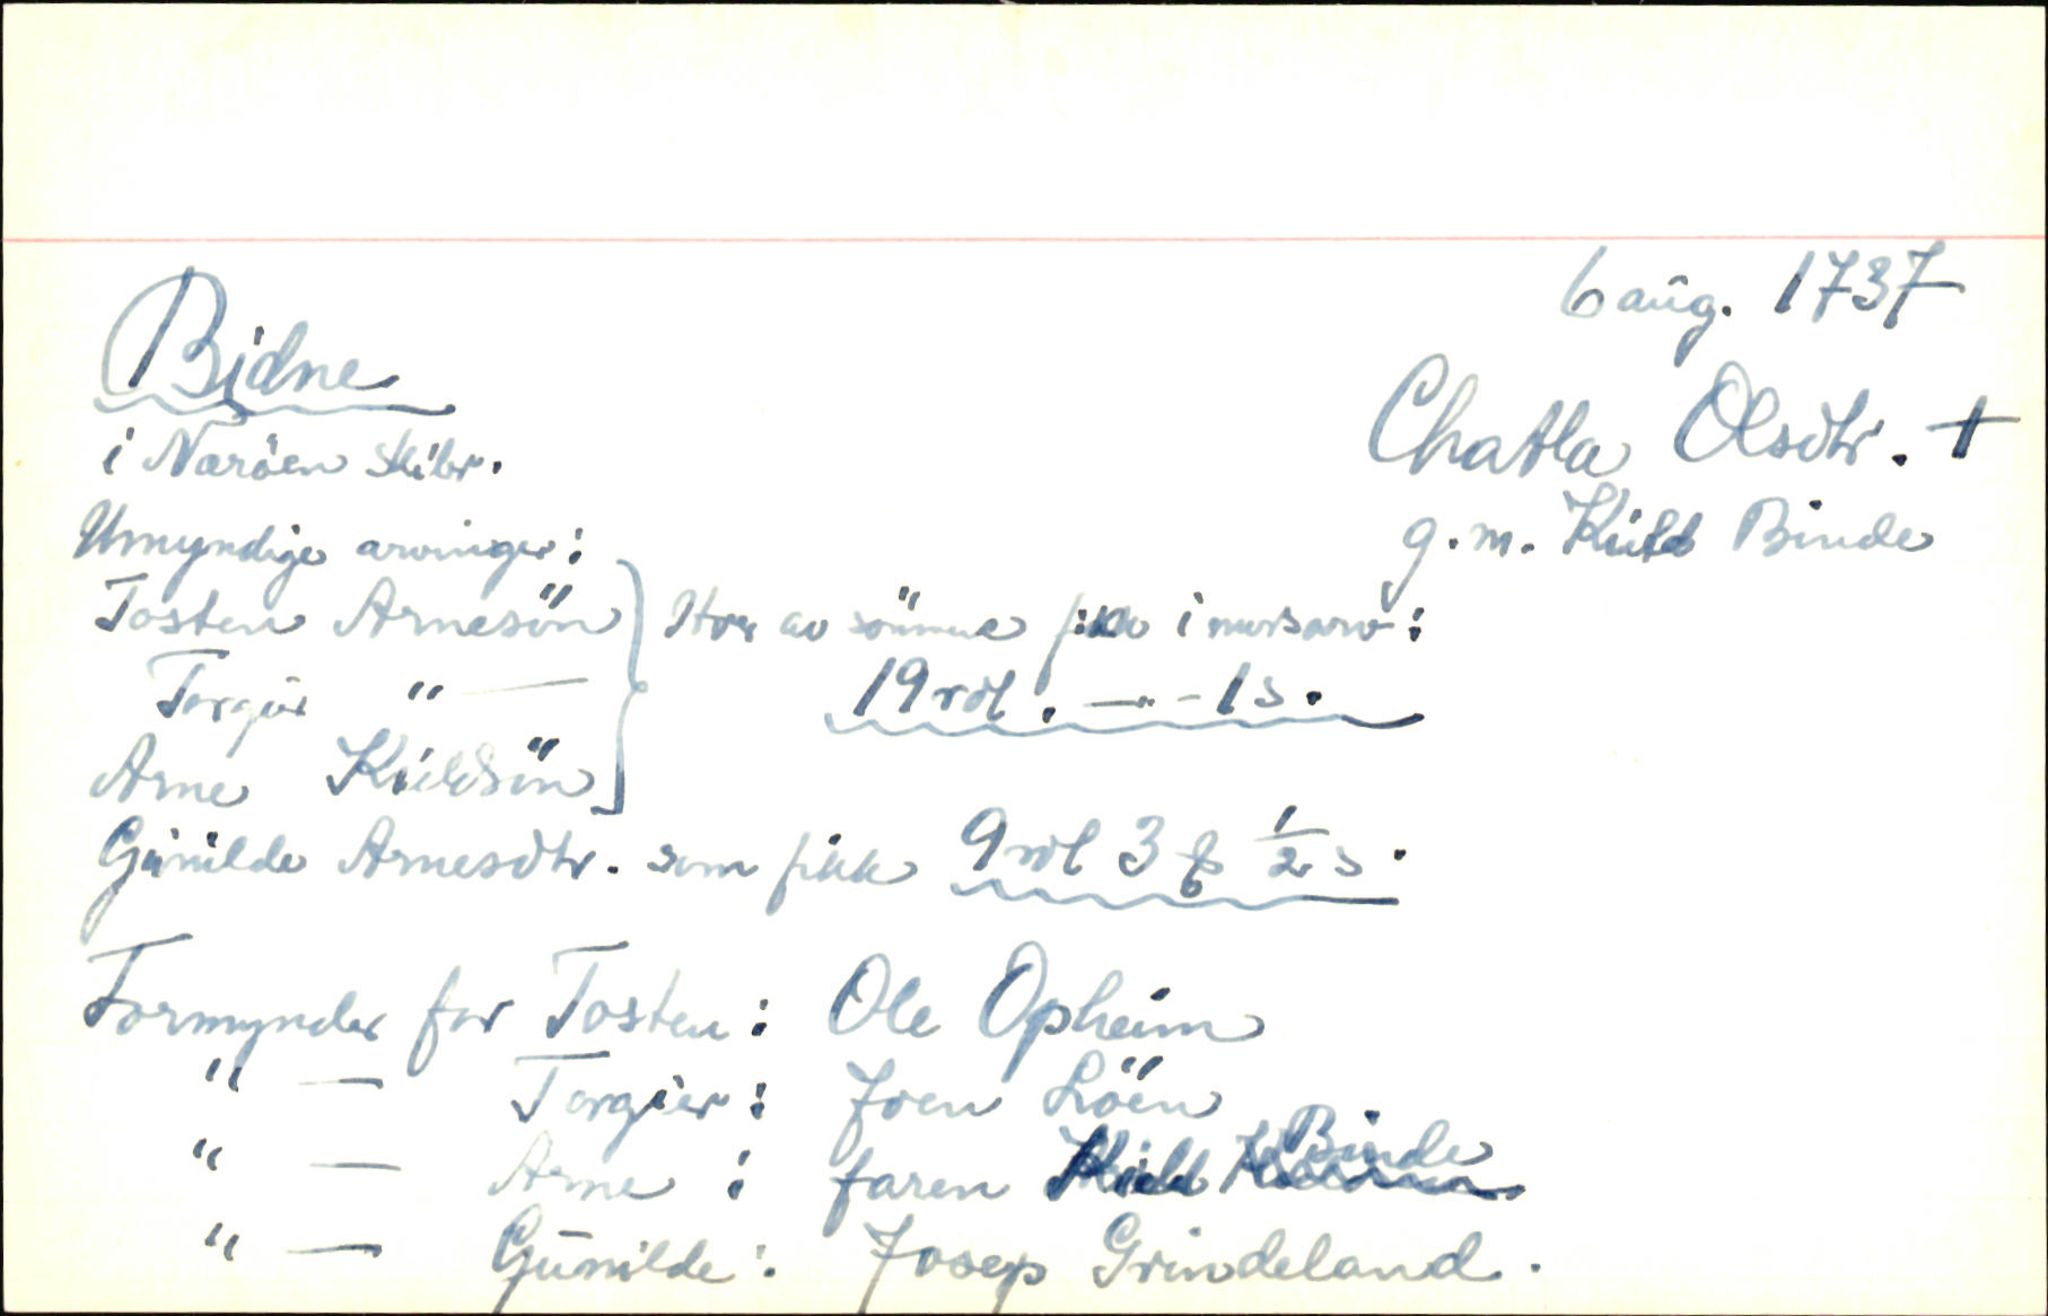 6 aug. 1737
Bidne
Chatla Olsdtr. +
i Naröen Skibr.
g. m. Kield Binde
Umyndige arvinger:
Tosten Arnesön } Hver av sönnene fikk i morsarv:
Torgier " — 19 rdl. — - 1 s.
Arne Kieldsön
Gunilde Arnesdtr. som fikk 9 rdl 3 ₰ 1/2 s.
Formynder for Tosten: Ole Opheim
" — Torgier: Joen Löen
" — Arne : faren Kield Binde
" — Gunilde: Josep Grindeland.